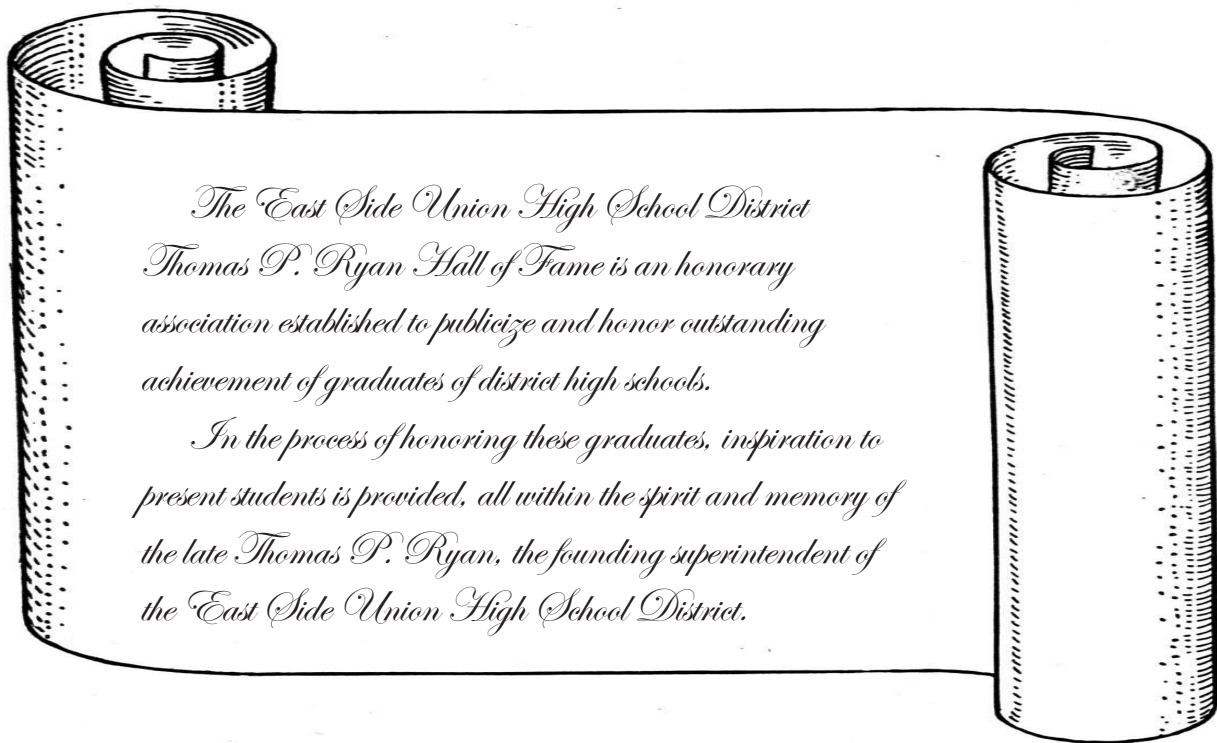 The East Side Union High School District
Thomas P. Ryan Hall of Fame is an honorary
association established to publicize and honor outstanding
achievement of graduates of district high schools.
In the process of honoring these graduates, inspiration to
present students is provided, all within the spirit and memory of
the late Thomas P. Ryan, the founding superintendent of
the East Side Union High School District.